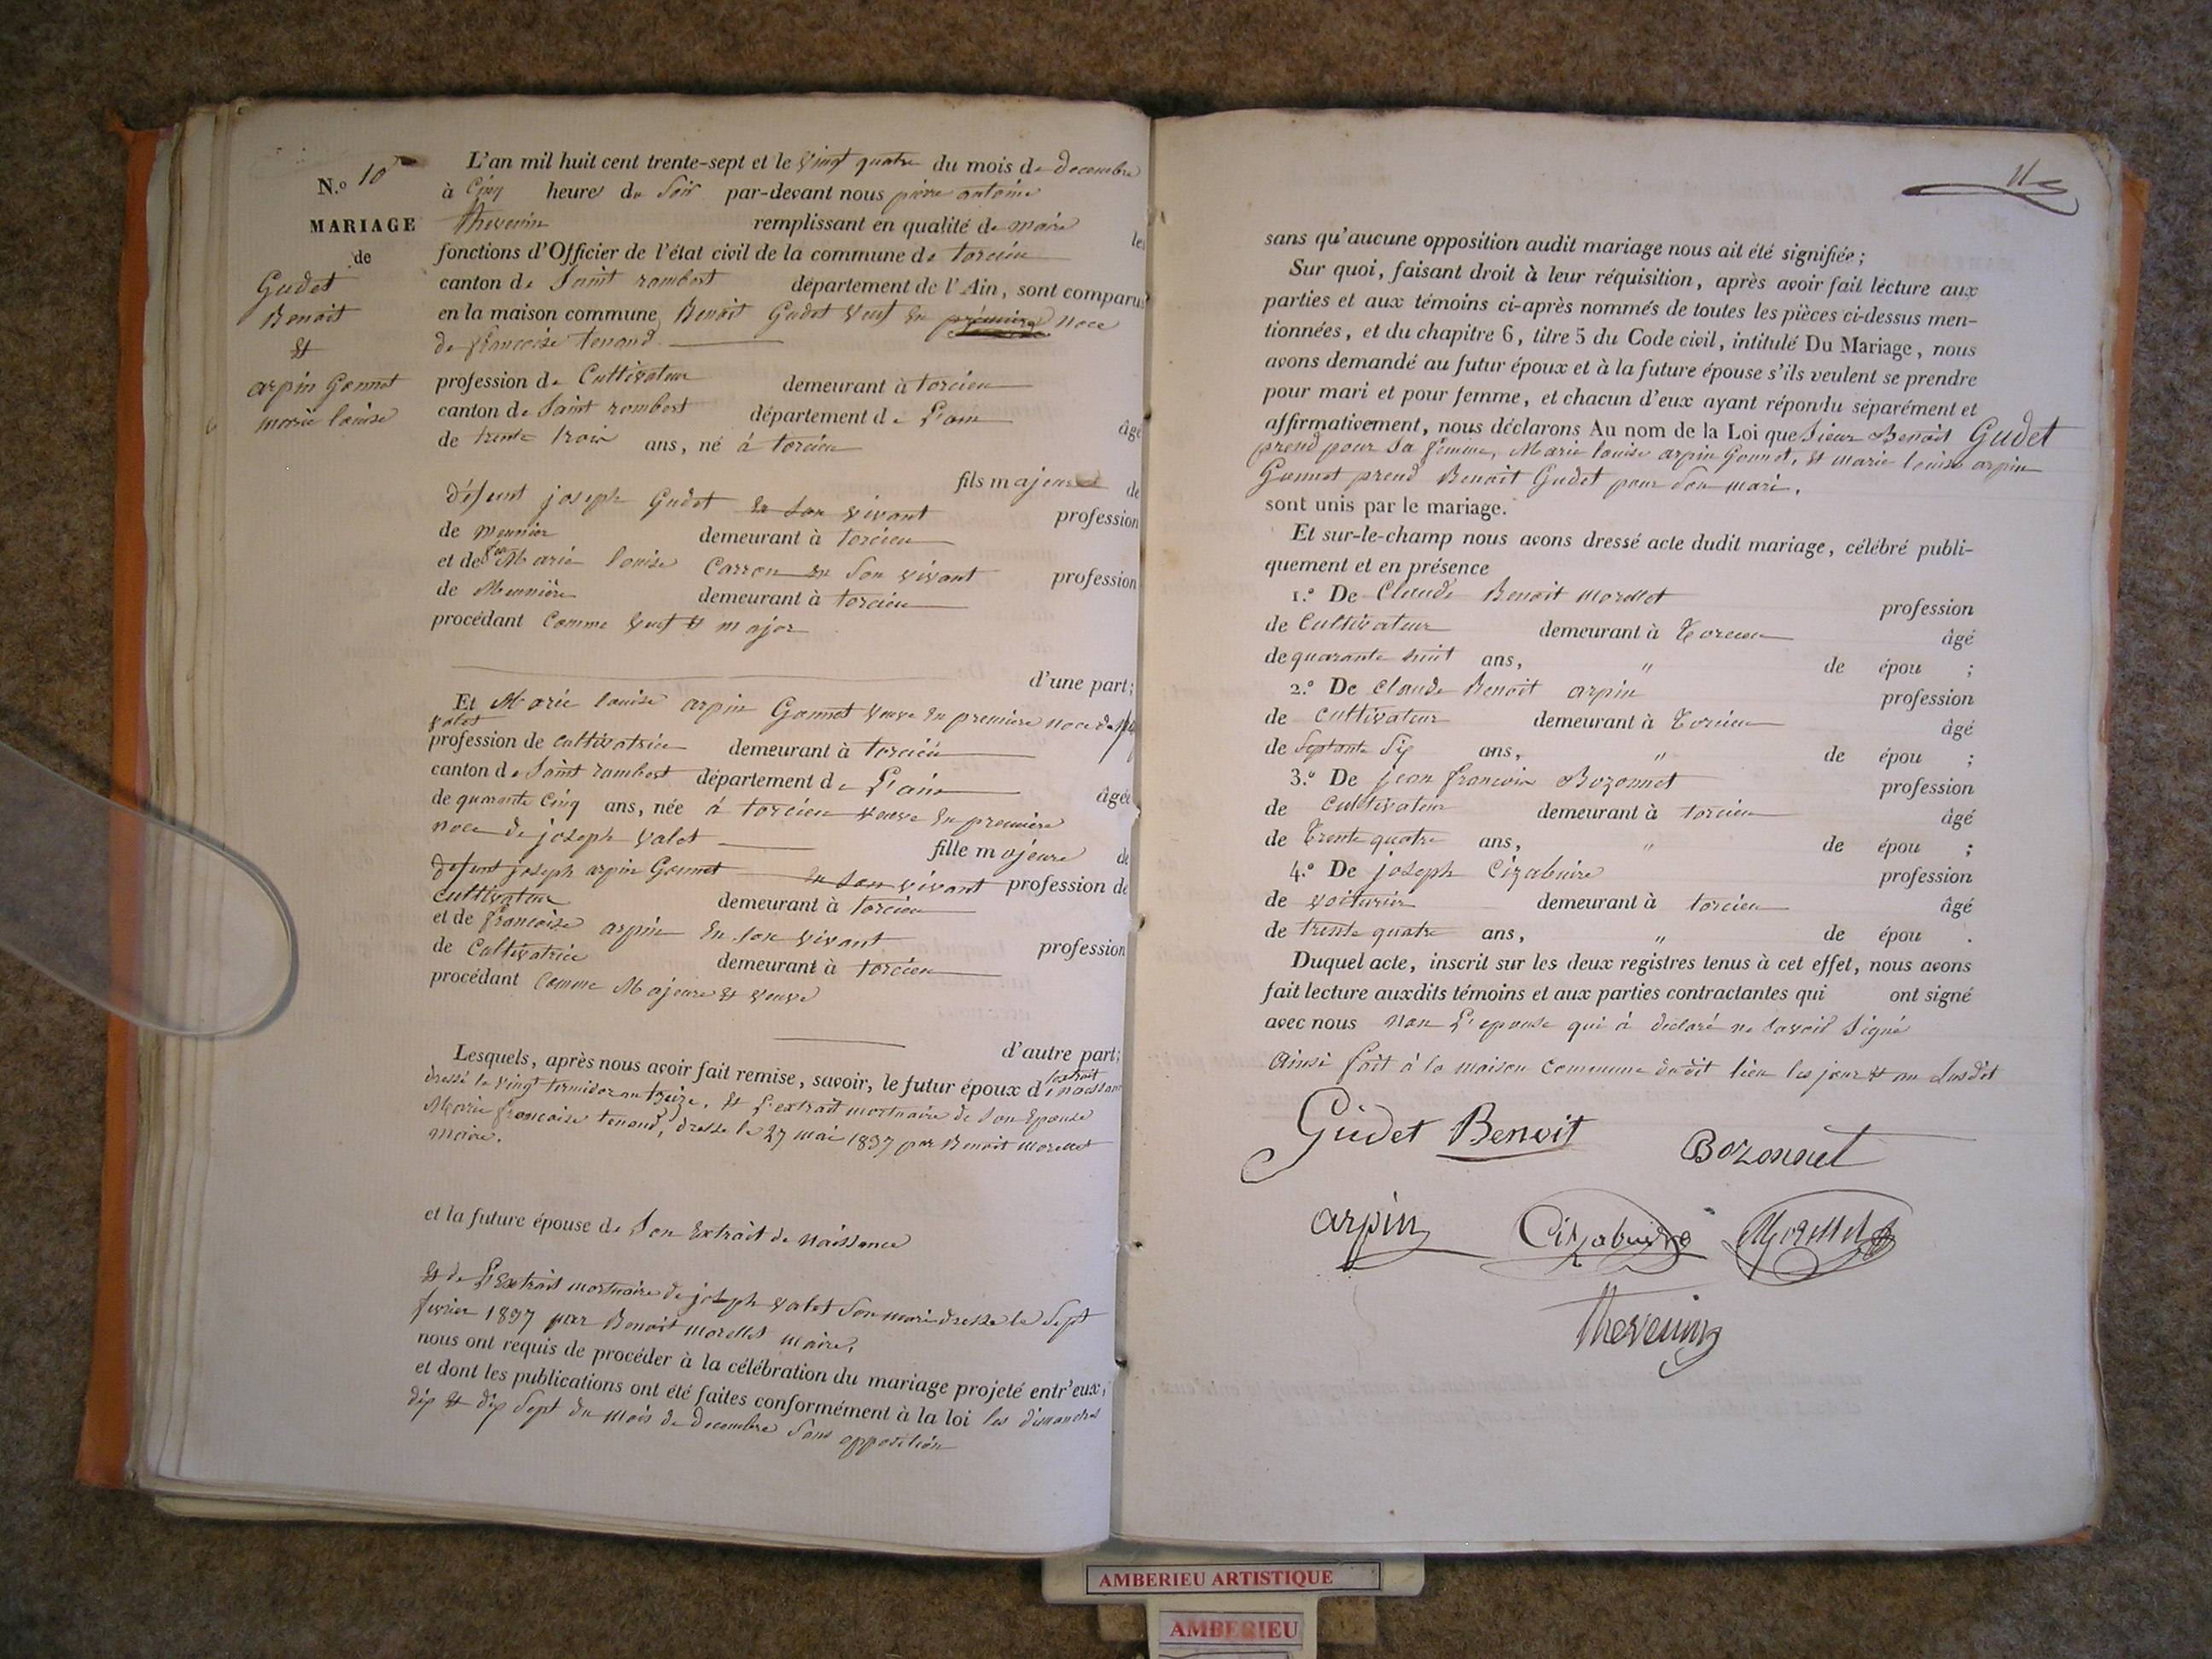 N.º 10
MARIAGE
de
Gudet
Benoit
&
arpin Gonnet
marie louise
L'an mil huit cent trente-sept et le vingt quatre du mois de decembre
à Cinq heures du Soir par-devant nous pierre antoine
thevenin remplissant en qualité de maire les
fonctions d'Officier de l'état civil de la commune de torcieu
canton de Saint rambert département de l'Ain, sont comparus
en la maison commune Benoit Gudet veuf en première noce
de francoise tenand
profession de Cultivateur demeurant à torcieu
canton de Saint rambert département de L'ain âgé
de trente trois ans, né à torcieu
fils majeur de
défunt joseph Gudet en son vivant profession
de meunier demeurant à torcieu
et de feue Marie louise Carron en Son vivant profession
de Meunière demeurant à torcieu
procédant Comme veuf & major
d'une part;
Et Marie louise arpin Gonnet veuve en première noce de
valet
profession de cultivatrice demeurant à torcieu
canton de Saint rambert département de L'ain âgée
de quarante Cinq ans, née à torcieu veuve En première
noce de joseph valet fille majeure de
défunt joseph arpin Gonnet En Son vivant profession de
Cultivateur demeurant à torcieu
et de francoise arpin En son vivant profession
de Cultivatrice demeurant à torcieu
procédant Comme Majeure & veuve
d'autre part;
Lesquels, après nous avoir fait remise, savoir, le futur époux d'extrait naissance
dressé le vingt termidor an treize, & L'extrait mortuaire de Son Epouse
Marie francoise tenand, dresse le 27 mai 1837 par Benoit morellet
maire.
et la future épouse de Son Extrait de Naissance
& de L'Extrait mortuaire de joseph valet Son mari dresse le Sept
fevrier 1837 par Benoit morellet maire,
nous ont requis de procéder à la célébration du mariage projeté entr'eux,
et dont les publications ont été faites conformément à la loi les dimanches
dix & dix Sept du mois de decembre Sans opposition
11
sans qu'aucune opposition audit mariage nous ait été signifiée;
Sur quoi, faisant droit à leur réquisition, après avoir fait lecture aux
parties et aux témoins ci-après nommés de toutes les pièces ci-dessus men-
tionnées, et du chapitre 6, titre 5 du Code civil, intitulé Du Mariage, nous
avons demandé au futur époux et à la future épouse s'ils veulent se prendre
pour mari et pour femme, et chacun d'eux ayant répondu séparément et
affirmativement, nous déclarons Au nom de la Loi que Sieur Benoit Gudet
prend pour Sa femme, Marie louise arpin Gonnet, & marie louise arpin
Gonnet prend Benoit Gudet pour Son mari.
sont unis par le mariage.
Et sur-le-champ nous avons dressé acte dudit mariage, célébré publi-
quement et en présence
1.º De Claude Benoit morellet profession
de Cultivateur demeurant à Torcieu âgé
de quarante huit ans, " de épou ;
2.º De Claude Benoit arpin profession
de cultivateur demeurant à Torcieu âgé
de Septante Six ans, " de épou ;
3.º De jean francois Bozonnet profession
de Cultivateur demeurant à torcieu âgé
de Trente quatre ans, " de épou ;
4.º De joseph Cizabuire profession
de voiturier demeurant à torcieu âgé
de trente quatre ans, " de épou .
Duquel acte, inscrit sur les deux registres tenus à cet effet, nous avons
fait lecture auxdits témoins et aux parties contractantes qui ont signé
avec nous Non L'epouse qui à declaré ne Savoir Signé
Ainsi fait à la maison Commune dudit lieu les jour & an Susdit
Gudet Benoit Bozonnet
arpin Cizabuire Morellet
Thevenin
AMBERIEU ARTISTIQUE
AMBERIEU